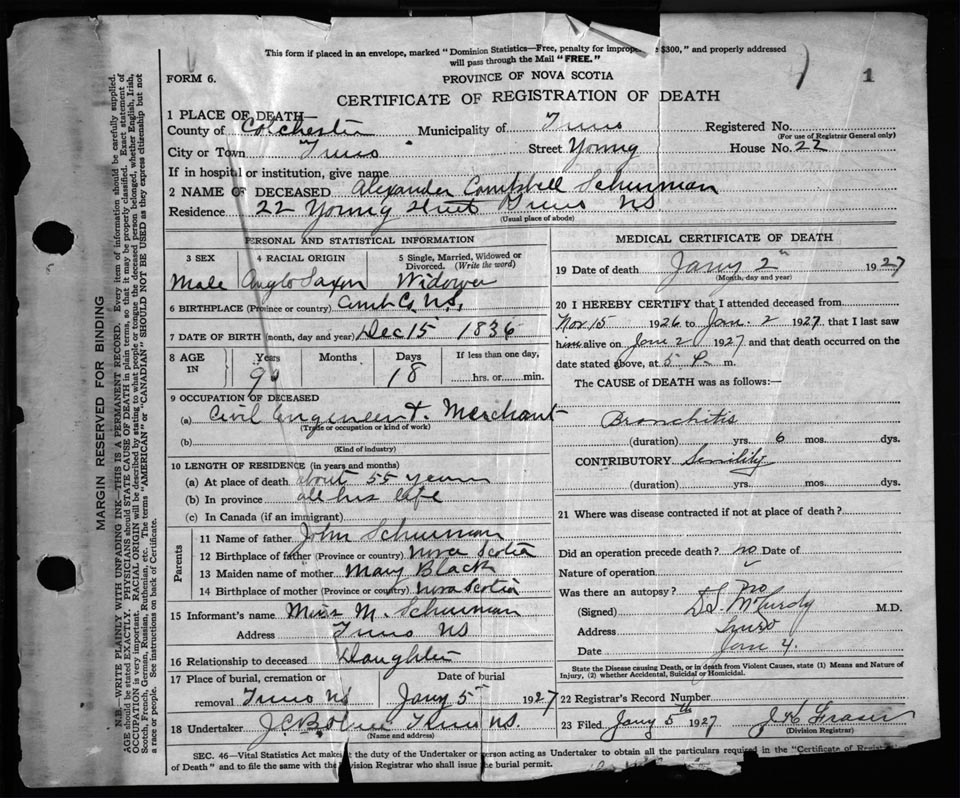 This form if placed in an envelope, marked "Dominion Statistics—Free, penalty for improper $300," and properly addressed
will pass through the Mail "FREE."
1
FORM 6.
PROVINCE OF NOVA SCOTIA
CERTIFICATE OF REGISTRATION OF DEATH
1 PLACE OF DEATH—
County of Colchester Municipality of Truro Registered No.
(For use of Registrar General only)
City or Town Truro Street Young House No. 22
If in hospital or institution, give name
2 NAME OF DECEASED Alexander Campbell Schurman
Residence 22 Young Street Truro NS
(Usual place of abode)
PERSONAL AND STATISTICAL INFORMATION
3 SEX 4 RACIAL ORIGIN 5 Single, Married, Widowed or Divorced. (Write the word)
Male Anglo Saxon Widower
6 BIRTHPLACE (Province or country) Cumb Co, NS,
7 DATE OF BIRTH (month, day and year) Dec 15 1836
8 AGE IN Years Months Days If less than one day,
90 18 hrs. or min.
9 OCCUPATION OF DECEASED
(a) Civil Engineer &. Merchant
(Trade or occupation or kind of work)
(b)
(Kind of industry)
10 LENGTH OF RESIDENCE (in years and months)
(a) At place of death about 55 years
(b) In province all his life
(c) In Canada (if an immigrant)
Parents
11 Name of father John Schurman
12 Birthplace of father (Province or country) Nova Scotia
13 Maiden name of mother Mary Black
14 Birthplace of mother (Province or country) Nova Scotia
15 Informant's name Miss M. Schurman
Address Truro NS
16 Relationship to deceased Daughter
17 Place of burial, cremation or removal Date of burial
Truro NS Jany 5 1927
18 Undertaker J.C.B. Truro NS.
(Name and address)
MEDICAL CERTIFICATE OF DEATH
19 Date of death Jany 2 1927
(Month, day and year)
20 I HEREBY CERTIFY that I attended deceased from
Nov 15 1926 to Jan. 2 1927, that I last saw
him alive on Jan 2 1927 and that death occurred on the
date stated above, at 5 P. m.
The CAUSE of DEATH was as follows:—
Bronchitis
(duration) yrs. 6 mos. dys.
CONTRIBUTORY Senility
(duration) yrs. mos. dys.
21 Where was disease contracted if not at place of death?
Did an operation precede death? no Date of
Nature of operation
Was there an autopsy? no
(Signed) D.S. McCurdy M.D.
Address Truro
Date Jan 4.
State the Disease causing Death, or in death from Violent Causes, state (1) Means and Nature of
Injury, (2) whether Accidental, Suicidal or Homicidal.
22 Registrar's Record Number
23 Filed Jany 5th 1927 J H Fraser
(Division Registrar)
SEC. 46—Vital Statistics Act makes it the duty of the Undertaker or person acting as Undertaker to obtain all the particulars required in the "Certificate of
of Death" and to file the same with the Division Registrar who shall issue the burial permit.
MARGIN RESERVED FOR BINDING
N.B.—WRITE PLAINLY WITH UNFADING INK—THIS IS A PERMANENT RECORD. Every item of information should be carefully supplied.
AGE should be stated EXACTLY. PHYSICIANS should STATE CAUSE OF DEATH in plain terms, so that it may be properly classified. Exact statement of
OCCUPATION is very important. RACIAL ORIGIN will be described by stating to what people or tongue the deceased person belonged, whether English, Irish,
Scotch, French, German, Russian, Ruthenian, etc. The terms "AMERICAN" or "CANADIAN" SHOULD NOT BE USED as they express citizenship but not
a race or people. See instructions on back of Certificate.